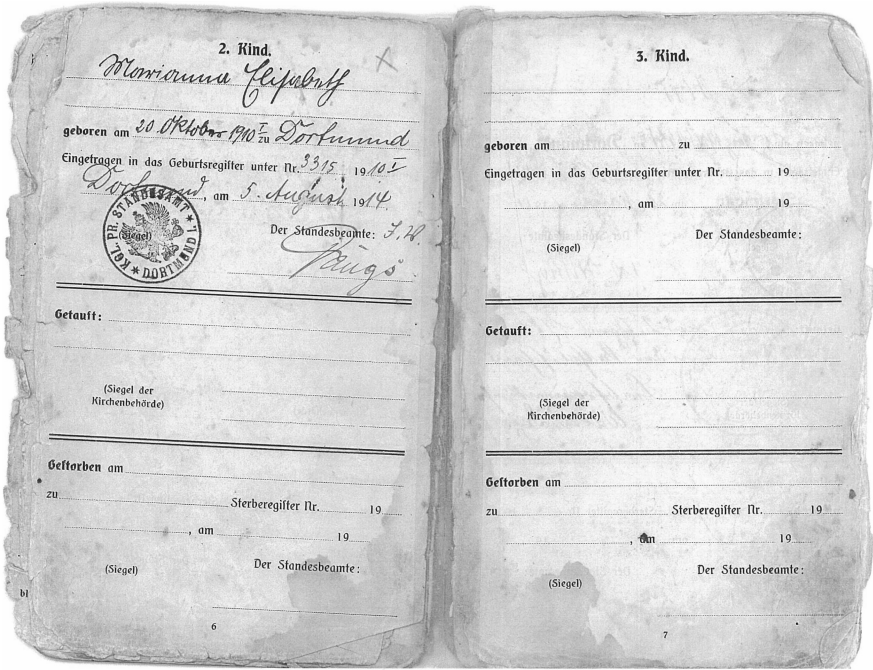 2. Kind.
Marianna Elisabeth
geboren am 20 Oktober 1910 I zu Dortmund
Eingetragen in das Geburtsregister unter Nr. 3315 1910 I
Dortmund, am 5. August 1914.
KGL. PR. STANDESAMT * DORTMUND I. *
(Siegel)
Der Standesbeamte: J. V.
Getauft:
(Siegel der
Kirchenbehörde)
Gestorben am
zu Sterberegister Nr. 19
, am 19
(Siegel)
Der Standesbeamte:
6
bl
3. Kind.
geboren am zu
Eingetragen in das Geburtsregister unter Nr. 19
, am 19
(Siegel)
Der Standesbeamte:
Getauft:
(Siegel der
Kirchenbehörde)
Gestorben am
zu Sterberegister Nr. 19
, am 19
(Siegel)
Der Standesbeamte:
7